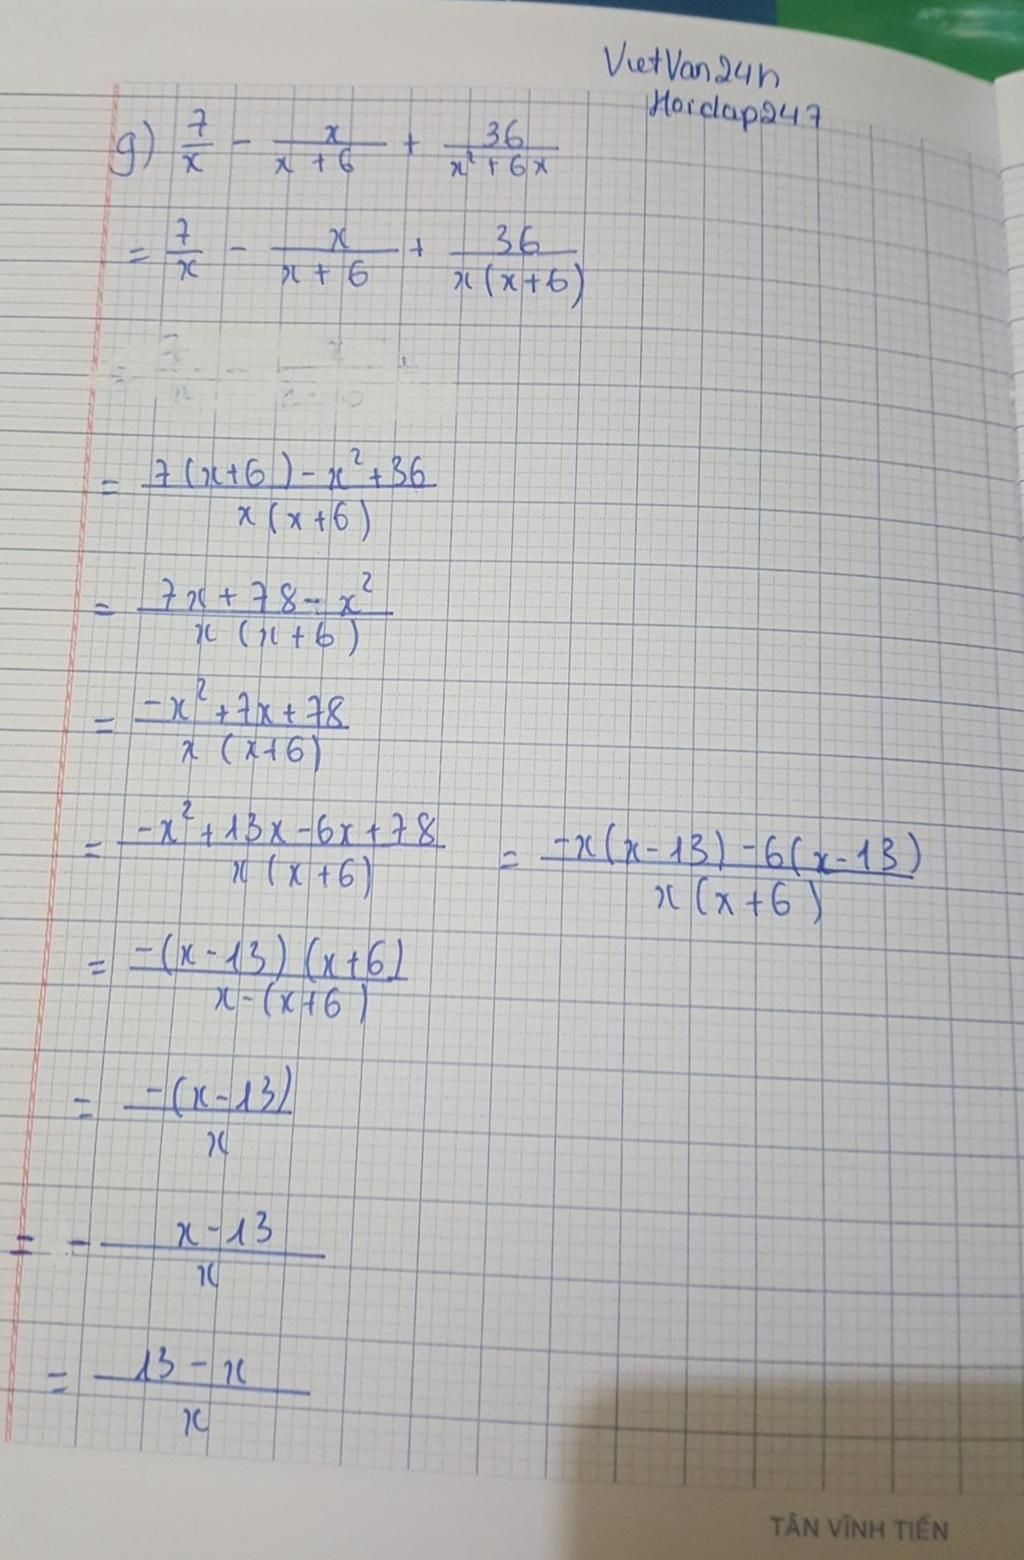 VietVan24h
Hoidap247
g) 7/x - x/(x + 6) + 36/(x² + 6x)
= 7/x - x/(x + 6) + 36/(x(x+6))
= (7(x+6) - x² + 36)/(x(x+6))
= (7x + 78 - x²)/(x(x+6))
= (-x² + 7x + 78)/(x(x+6))
= (-x² + 13x - 6x + 78)/(x(x+6)) = (-x(x-13) - 6(x-13))/(x(x+6))
= (-(x-13)(x+6))/(x-(x+6))
= (-(x-13))/x
= - (x-13)/x
= (13-x)/x
TÂN VĨNH TIẾN